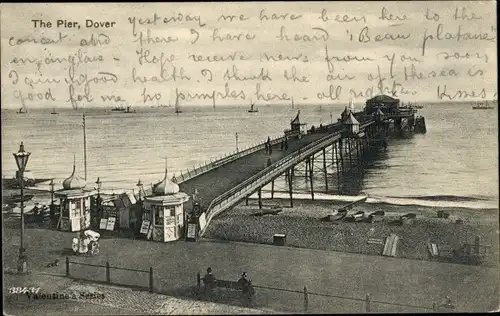 The Pier, Dover
yesterday we have been here to the
concert and there I have heard "Beau platane"
en anglais - Hope receive news from you soon
I am in good health I think the air of the sea is
good for me no pimples here - all right Kisses
38437
Valentine's Series